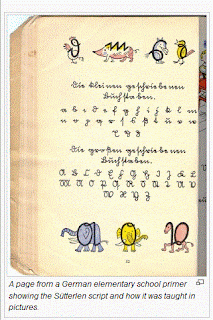 Die kleinen geschriebenen
Buchstaben.
a b c d e f g h i j k l m
n o p q r s ß t u v w
x y z
Die großen geschriebenen
Buchstaben.
A B C D E F G H I J K L
M N O P Q R S T U V
W X Y Z
A page from a German elementary school primer
showing the Sütterlin script and how it was taught in
pictures.